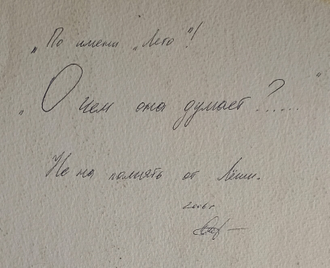 "По имени „Лето"!
„О чем она думает?....."
На память от Лёши.